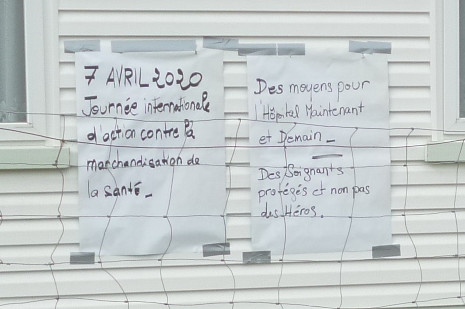 7 AVRIL 2020
Journée internationale
d'action contre la
marchandisation de
la santé_
Des moyens pour
l'Hôpital Maintenant
et Demain_
Des Soignants
protégés et non pas
des Héros.